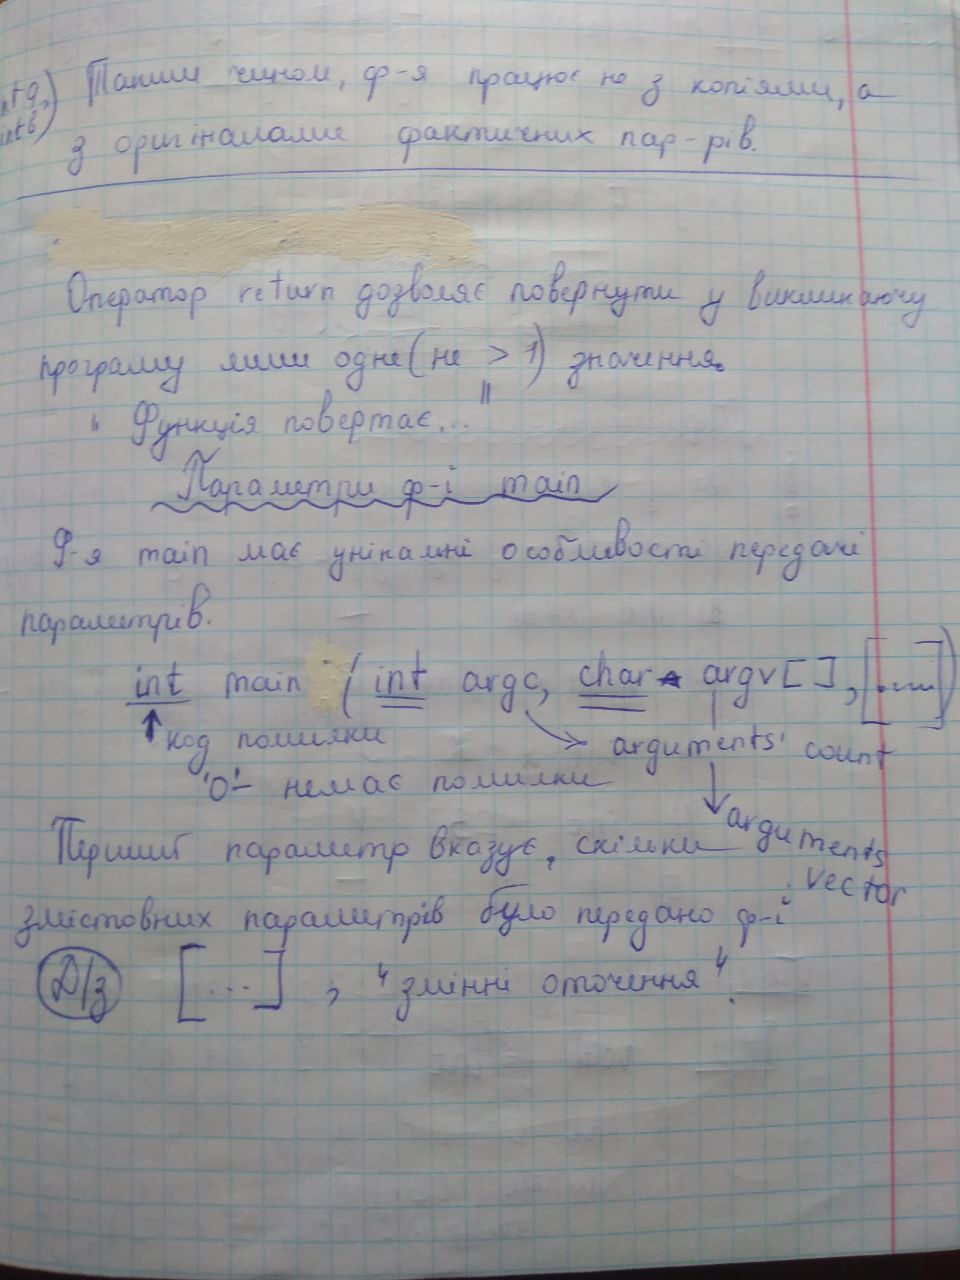 int a,
int b)
Таким чином, ф-я працює не з копіями, а
з оригіналами фактичних пар-рів.
Оператор return дозволяє повернути у викликаючу
програму лише одне (не > 1) значення.
"Функція повертає..."
Параметри ф-і main
Ф-я main має унікальні особливості передачі
параметрів.
int main (int argc, char* argv[], [...])
код помилки
arguments' count
'0' - немає помилки
arguments
vector
Перший параметр вказує, скільки
змістовних параметрів було передано ф-і
Д/з [...] , "змінні оточення".